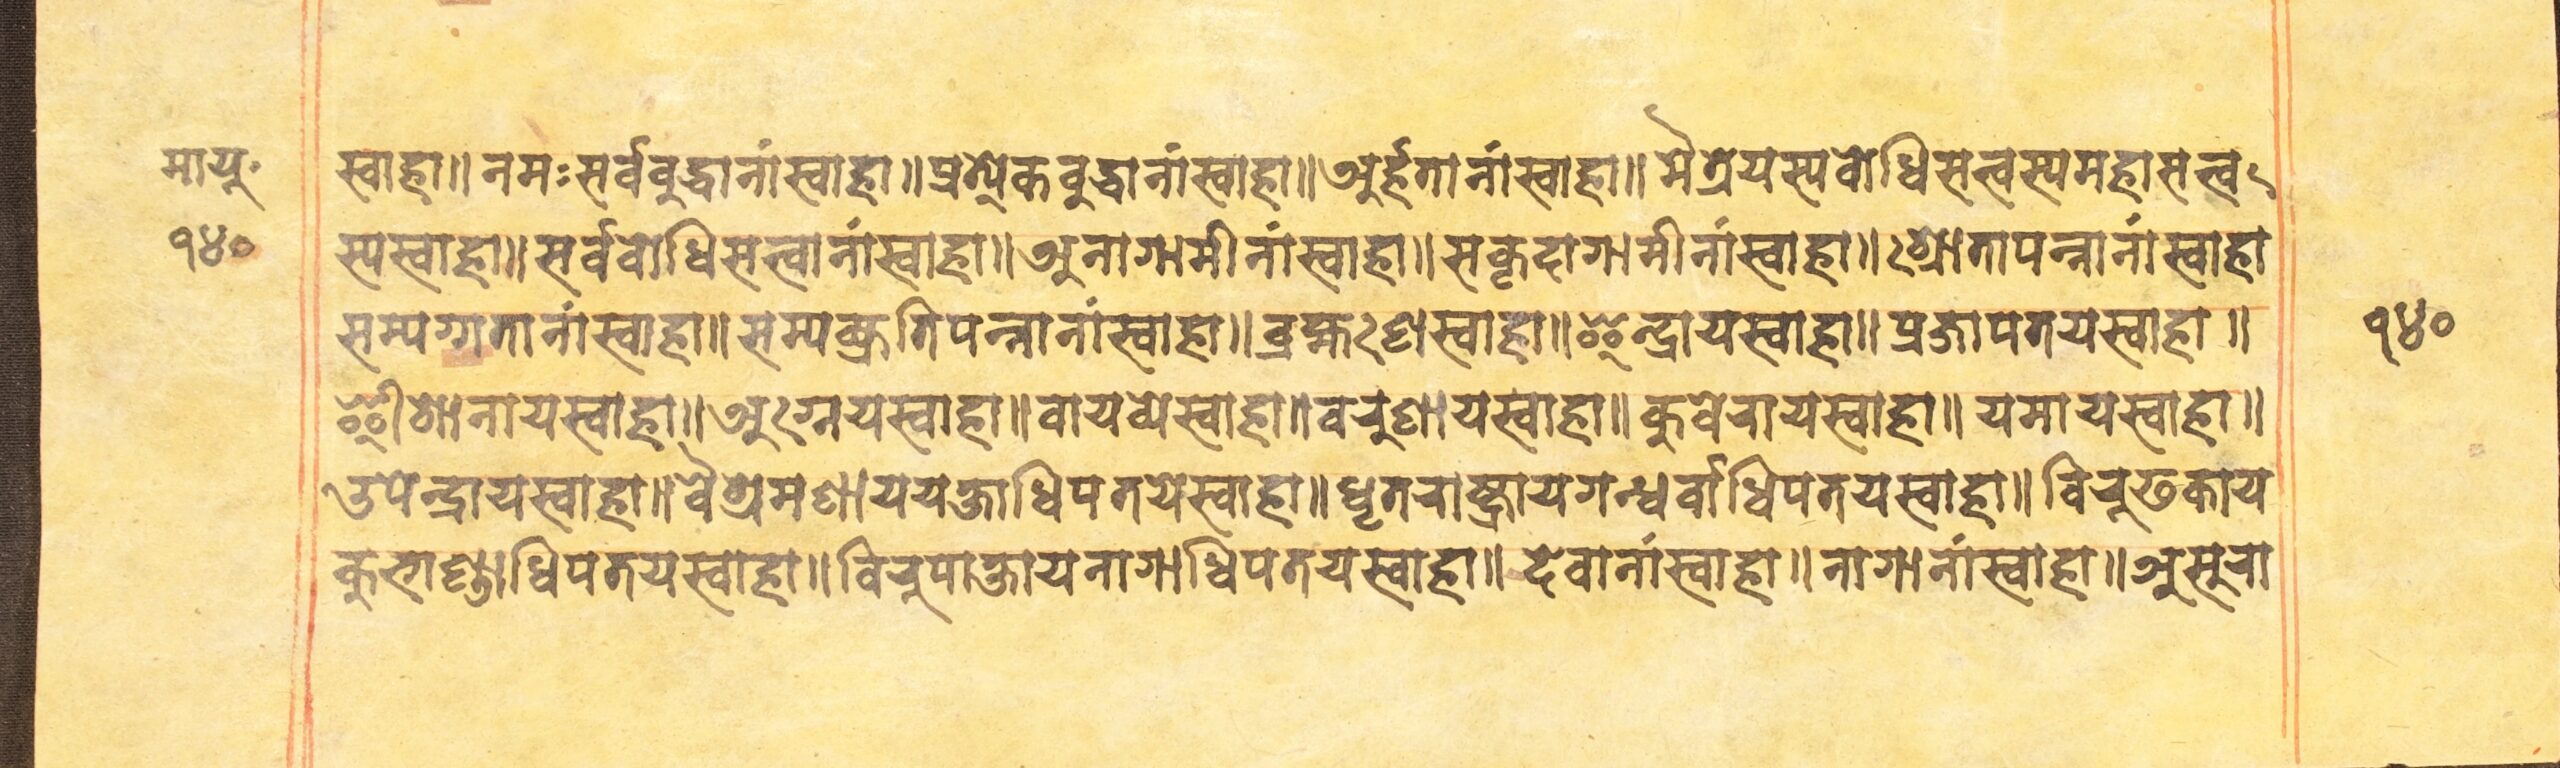 मायू॰
१४०
स्वाहा॥ नमः सर्वबुद्धानां स्वाहा॥ प्रत्येकबुद्धानां स्वाहा॥ अर्हतानां स्वाहा॥ मैत्रेयस्य बोधिसत्त्वस्य महासत्त्व
स्य स्वाहा॥ सर्वबोधिसत्त्वानां स्वाहा॥ अनागामीनां स्वाहा॥ सकृदागामीनां स्वाहा॥ श्रोतापन्नानां स्वाहा
सम्यग्गतानां स्वाहा॥ सम्यक्प्रतिपन्नानां स्वाहा॥ ब्रह्मणे स्वाहा॥ इन्द्राय स्वाहा॥ प्रजापतये स्वाहा॥
१४०
ईशानाय स्वाहा॥ अग्नये स्वाहा॥ वायव्ये स्वाहा॥ वरुणाय स्वाहा॥ कुवेराय स्वाहा॥ यमाय स्वाहा॥
उपेन्द्राय स्वाहा॥ वैश्रमणाय यक्षाधिपतये स्वाहा॥ धृतराष्ट्राय गन्धर्वाधिपतये स्वाहा॥ विरुढकाय
कुभाण्डाधिपतये स्वाहा॥ विरुपाक्षाय नागाधिपतये स्वाहा॥ देवानां स्वाहा॥ नागानां स्वाहा॥ असुरा